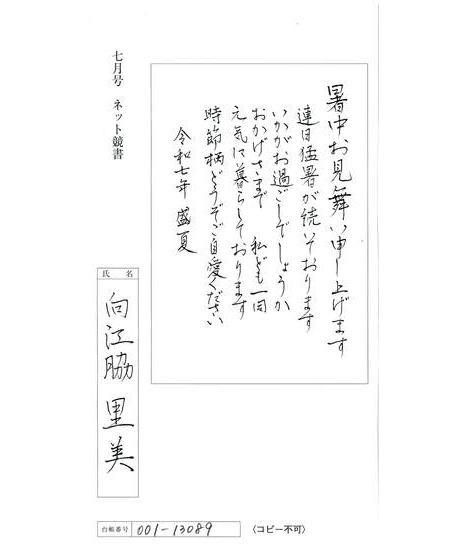 暑中お見舞い申し上げます
連日猛暑が続いております
いかがお過ごしでしょうか
おかげさまで 私ども一同
元気に暮らしております
時節柄どうぞご自愛ください
令和七年 盛夏
七月号 ネット競書
氏名
向江脇 里美
台帳番号 001-13089
〈コピー不可〉